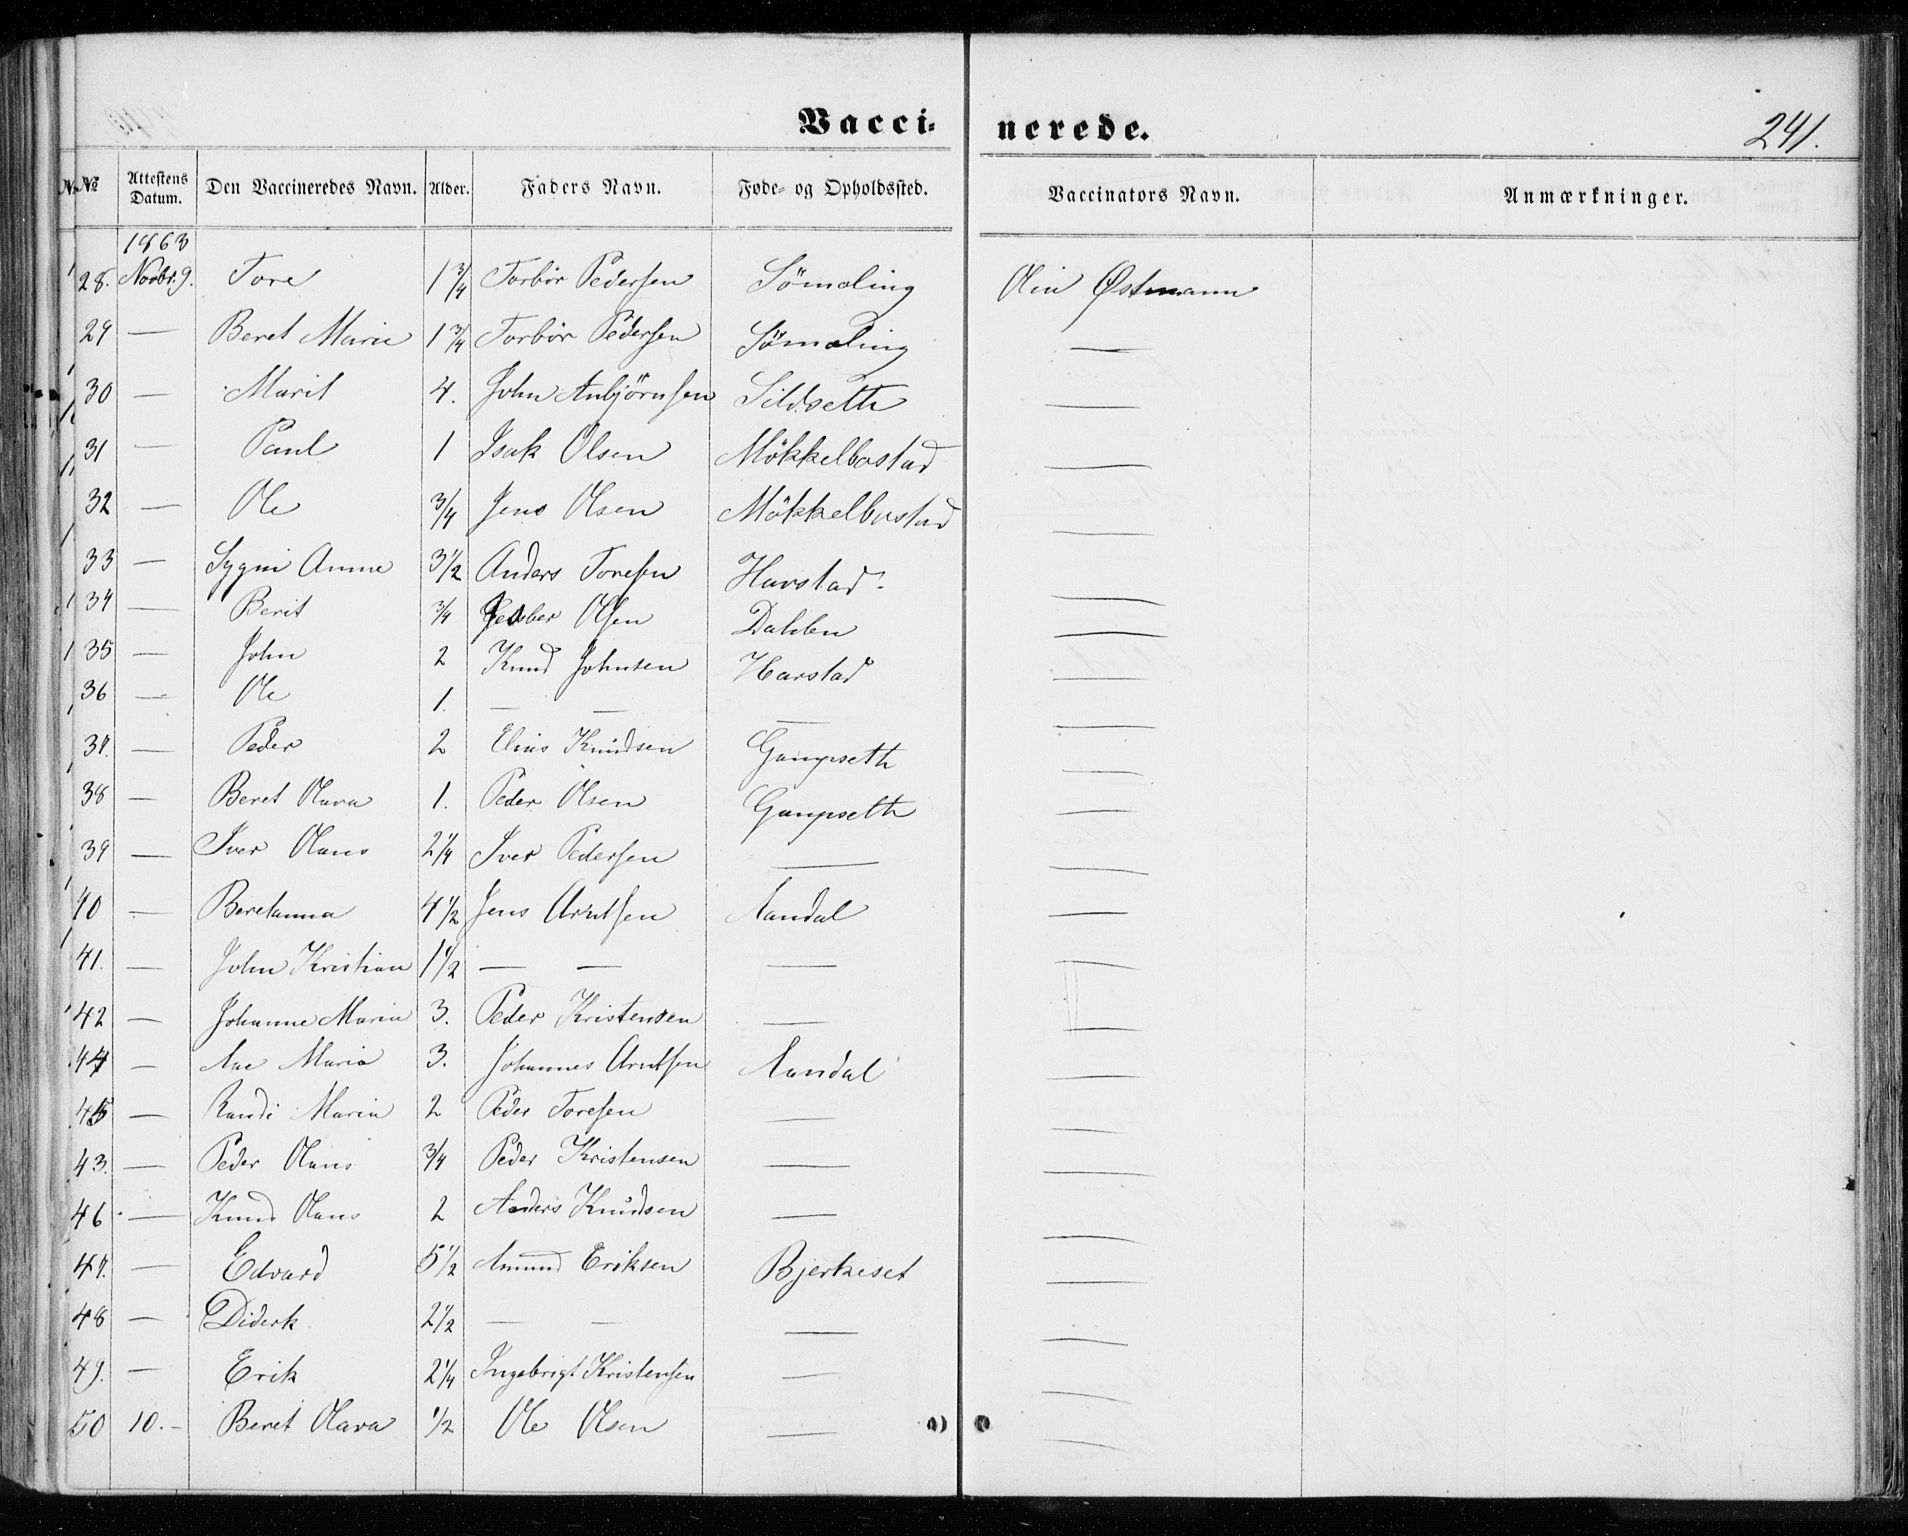 Vacci- nerede.
241.
No. Attestens Datum. Den Vaccineredes Navn. Alder. Faders Navn. Føde- og Opholdssted. Vaccinators Navn. Anmærkninger.
1863
28. Novbr. 9. Tore 1 3/4 Torbør Pedersen Sömoling Østmann
29 — Beret Marie 1 3/4 Torbør Pedersen Sömoling —
30 — Marit 4. John Anbjörnsen Sildseth —
31 — Paul 1 Isak Olsen Mökkelbostad —
32 — Ole 3/4 Jens Olsen Mökkelbostad —
33 — Sygni Anne 3 1/2 Anders Toresen Havstad. —
34 — Berit 3/4 Olsen Dahlen —
35 — John 2 Knud Johnsen Harstad —
36 — Ole 1. — — — —
37. — Peder 2 Elias Knudsen Gangseth —
38 — Beret Olava 1. Peder Olsen Gangseth —
39 — Iver Olaus 2 1/4 Iver Pedersen — —
40 — Beretanna 4 1/2 Jens Arntsen Aandal —
41. — John Kristian 1 1/2 — — — —
42 — Johanne Maria 3. Peder Kristensen — —
44 — Ane Maria 3. Johannes Arntsen Aandal —
45 — Randi Maria 2 Peder Toresen — —
43. — Peder Olaus 3/4 Peder Kristensen — —
46 — Knud Olaus 2 Anders Knudsen — —
47. — Edvard 5 1/2 Amund Eriksen Bjerkeset —
48 — Diderk 2 1/2 — — — —
49. — Erik 2 1/4 Ingebrigt Kristensen — —
50 10.- Beret Olava 1/2 Ole Olsen — —